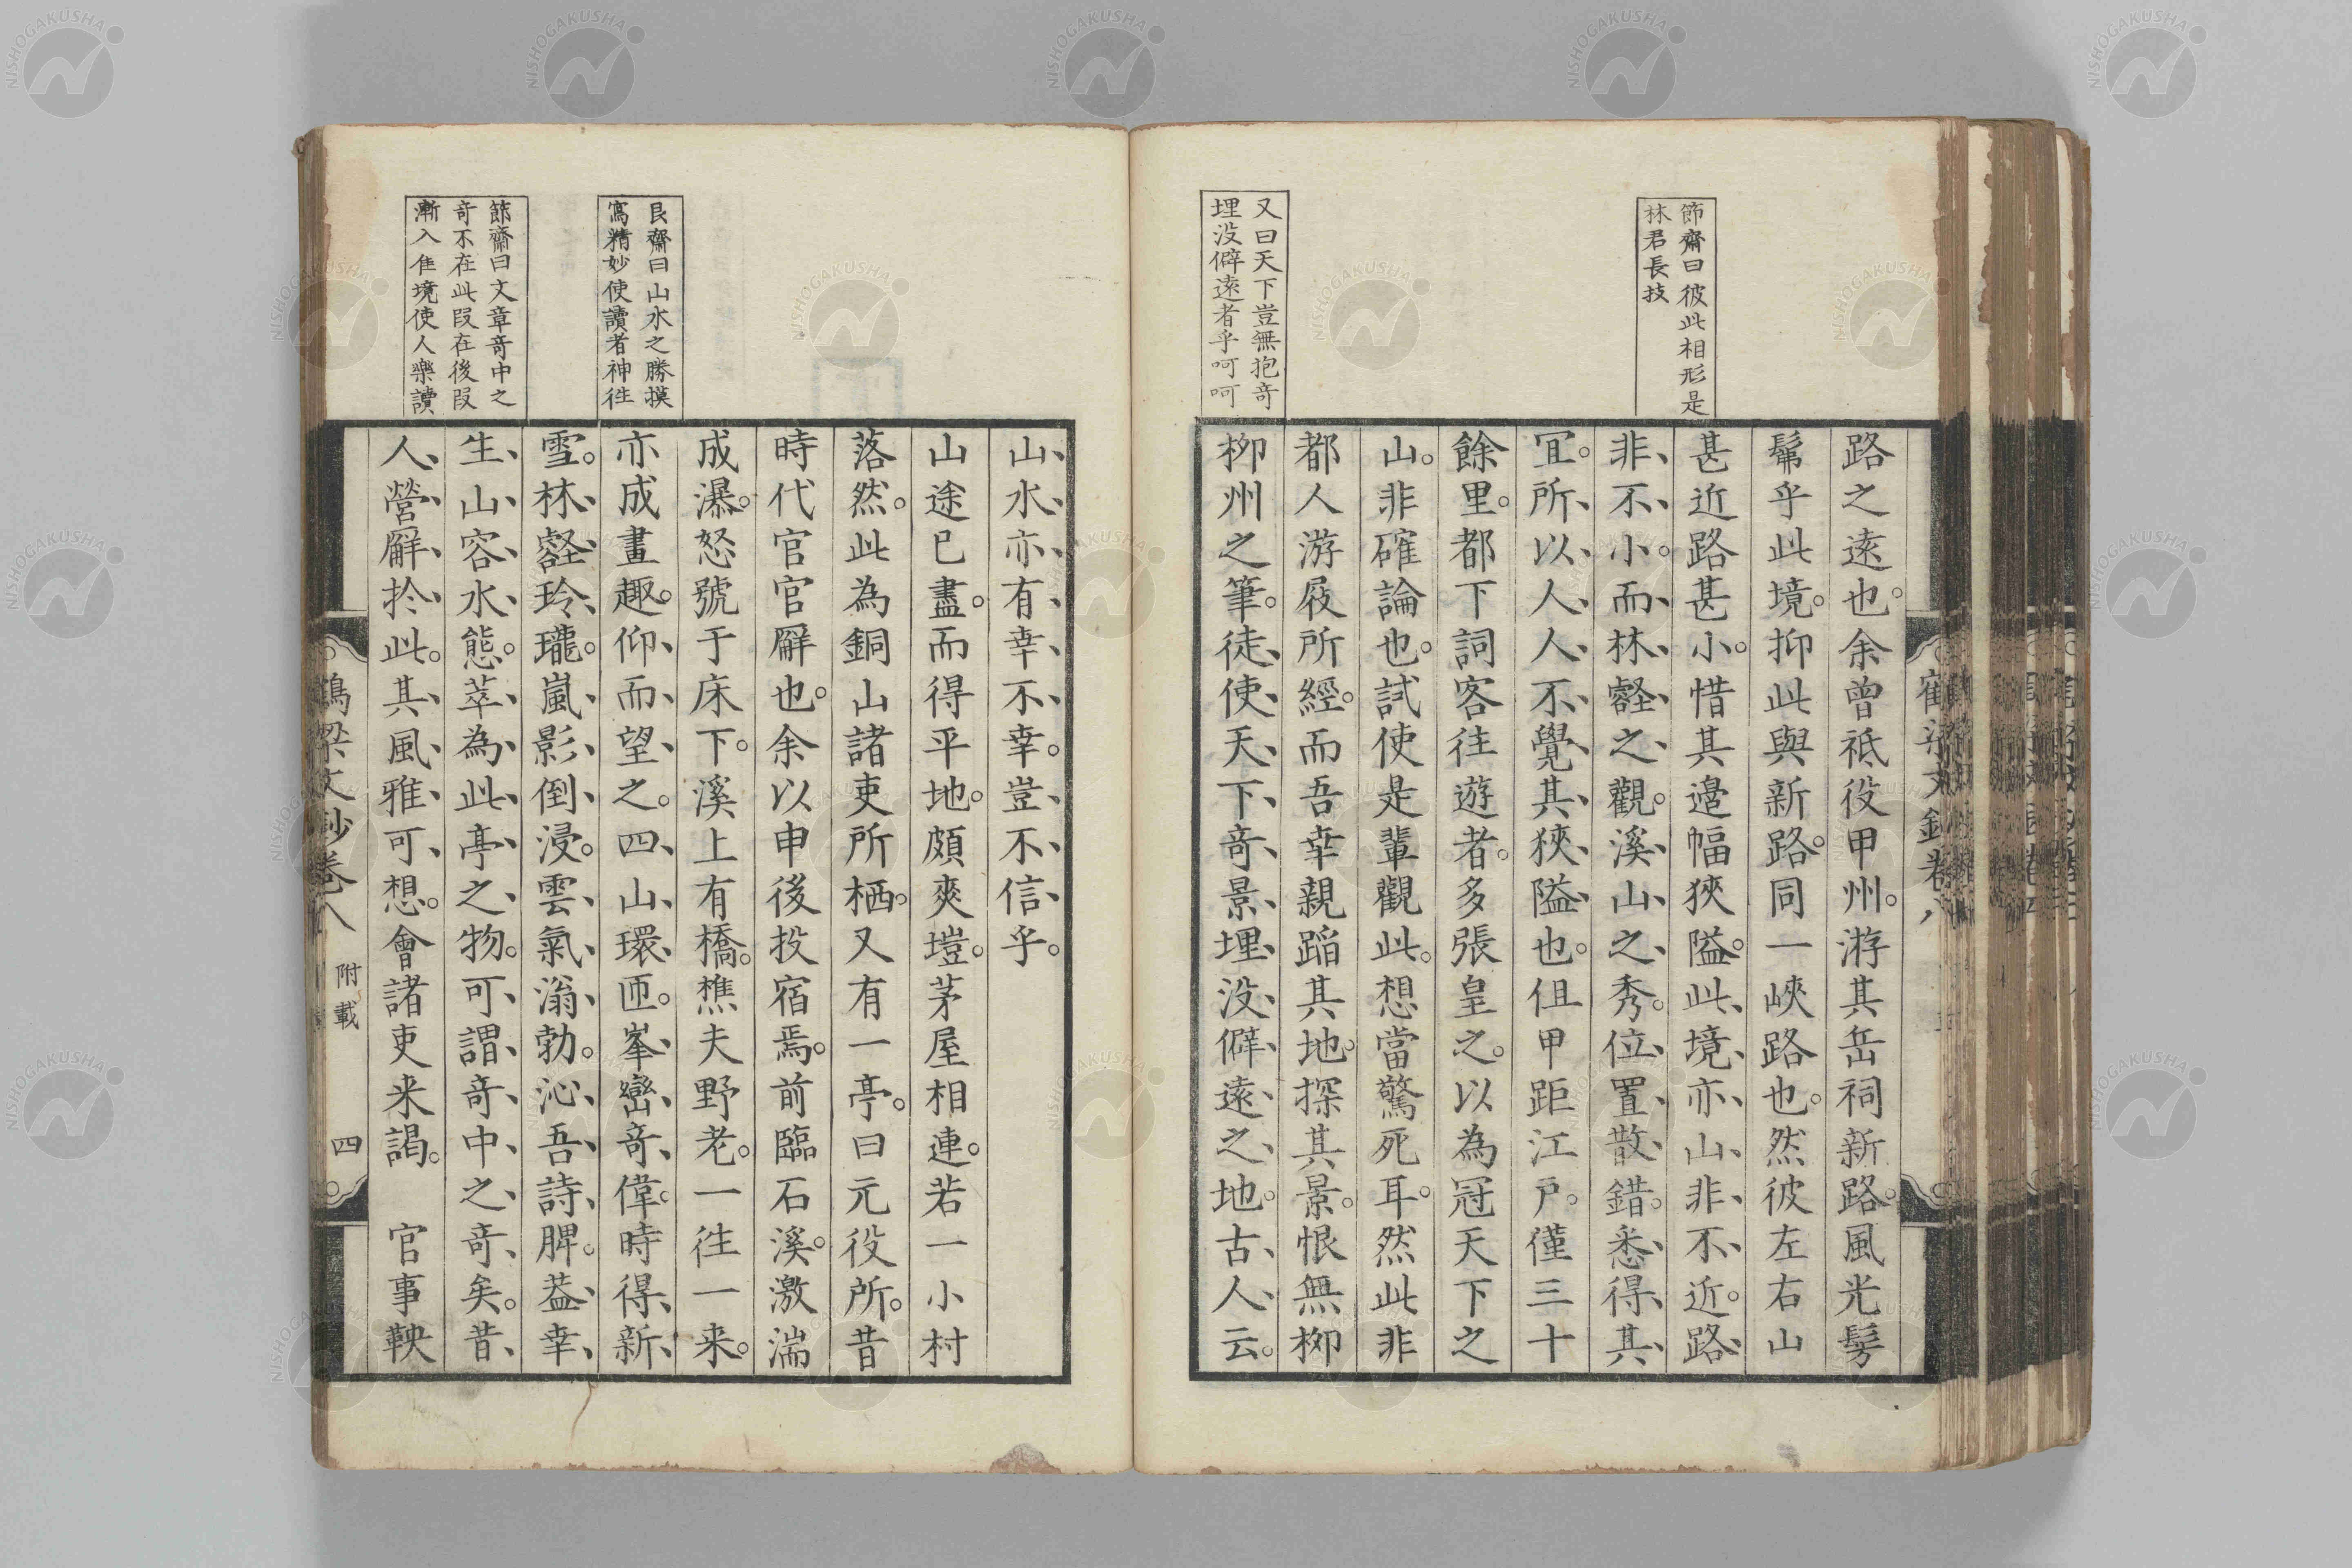 節齋曰彼此相形是
林君長技
又曰天下豈無抱奇
埋没僻遠者乎呵呵
路之遠也。余曾祗役甲州。游其岳祠新路。風光髣
髴乎此境。抑此與新路。同一峽路也。然彼左右山
甚近路甚小。惜其邉幅狹隘。此境亦山非不近。路
非不小。而林壑之觀。溪山之秀。位置散錯。悉得其
冝。所以人人不覺其狹隘也。但甲距江戸。僅三十
餘里。都下詞客往遊者。多張皇之。以為冠天下之
山。非確論也。試使是輩觀此。想當驚死耳。然此非
都人游屐所經。而吾幸親蹈其地。探其景。恨無柳
柳州之筆。徒使天下奇景埋没僻遠之地。古人云。
艮齋曰山水之勝摸
寫精妙使讀者神徃
節齋曰文章奇中之
奇不在此段在後段
漸入佳境使人樂讀
山水亦有幸不幸。豈不信乎。
山途已盡。而得平地。頗爽塏。茅屋相連。若一小村
落然。此為銅山諸吏所栖。又有一亭。曰元役所。昔
時代官官廨也。余以申後投宿焉。前臨石溪。激湍
成瀑。怒號于床下。溪上有橋。樵夫野老。一徃一来。
亦成畫趣。仰而望之。四山環匝。峯巒奇偉。時得新
雪。林壑玲瓏。嵐影倒浸。雲氣滃勃。沁吾詩脾。葢幸
生山容水態。萃為此亭之物。可謂奇中之奇矣。昔
人營廨於此。其風雅可想。會諸吏来謁。 官事鞅
鶴梁文鈔巻八 附載 四